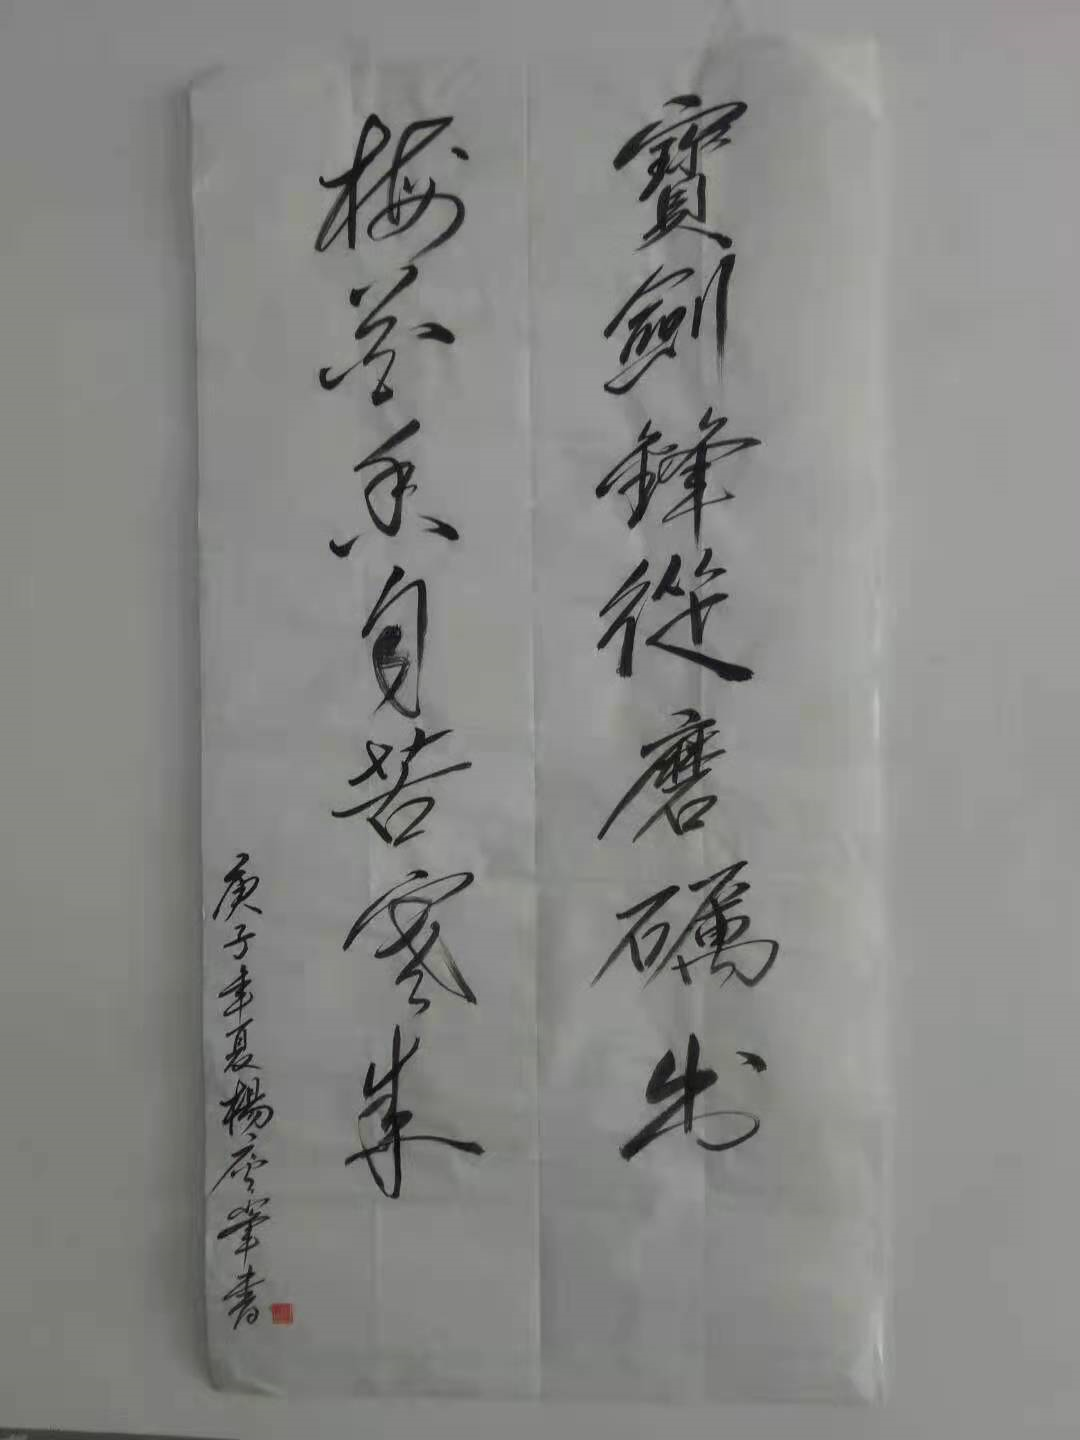 寶劍鋒從磨礪出
梅花香自苦寒來
庚子年夏楊書